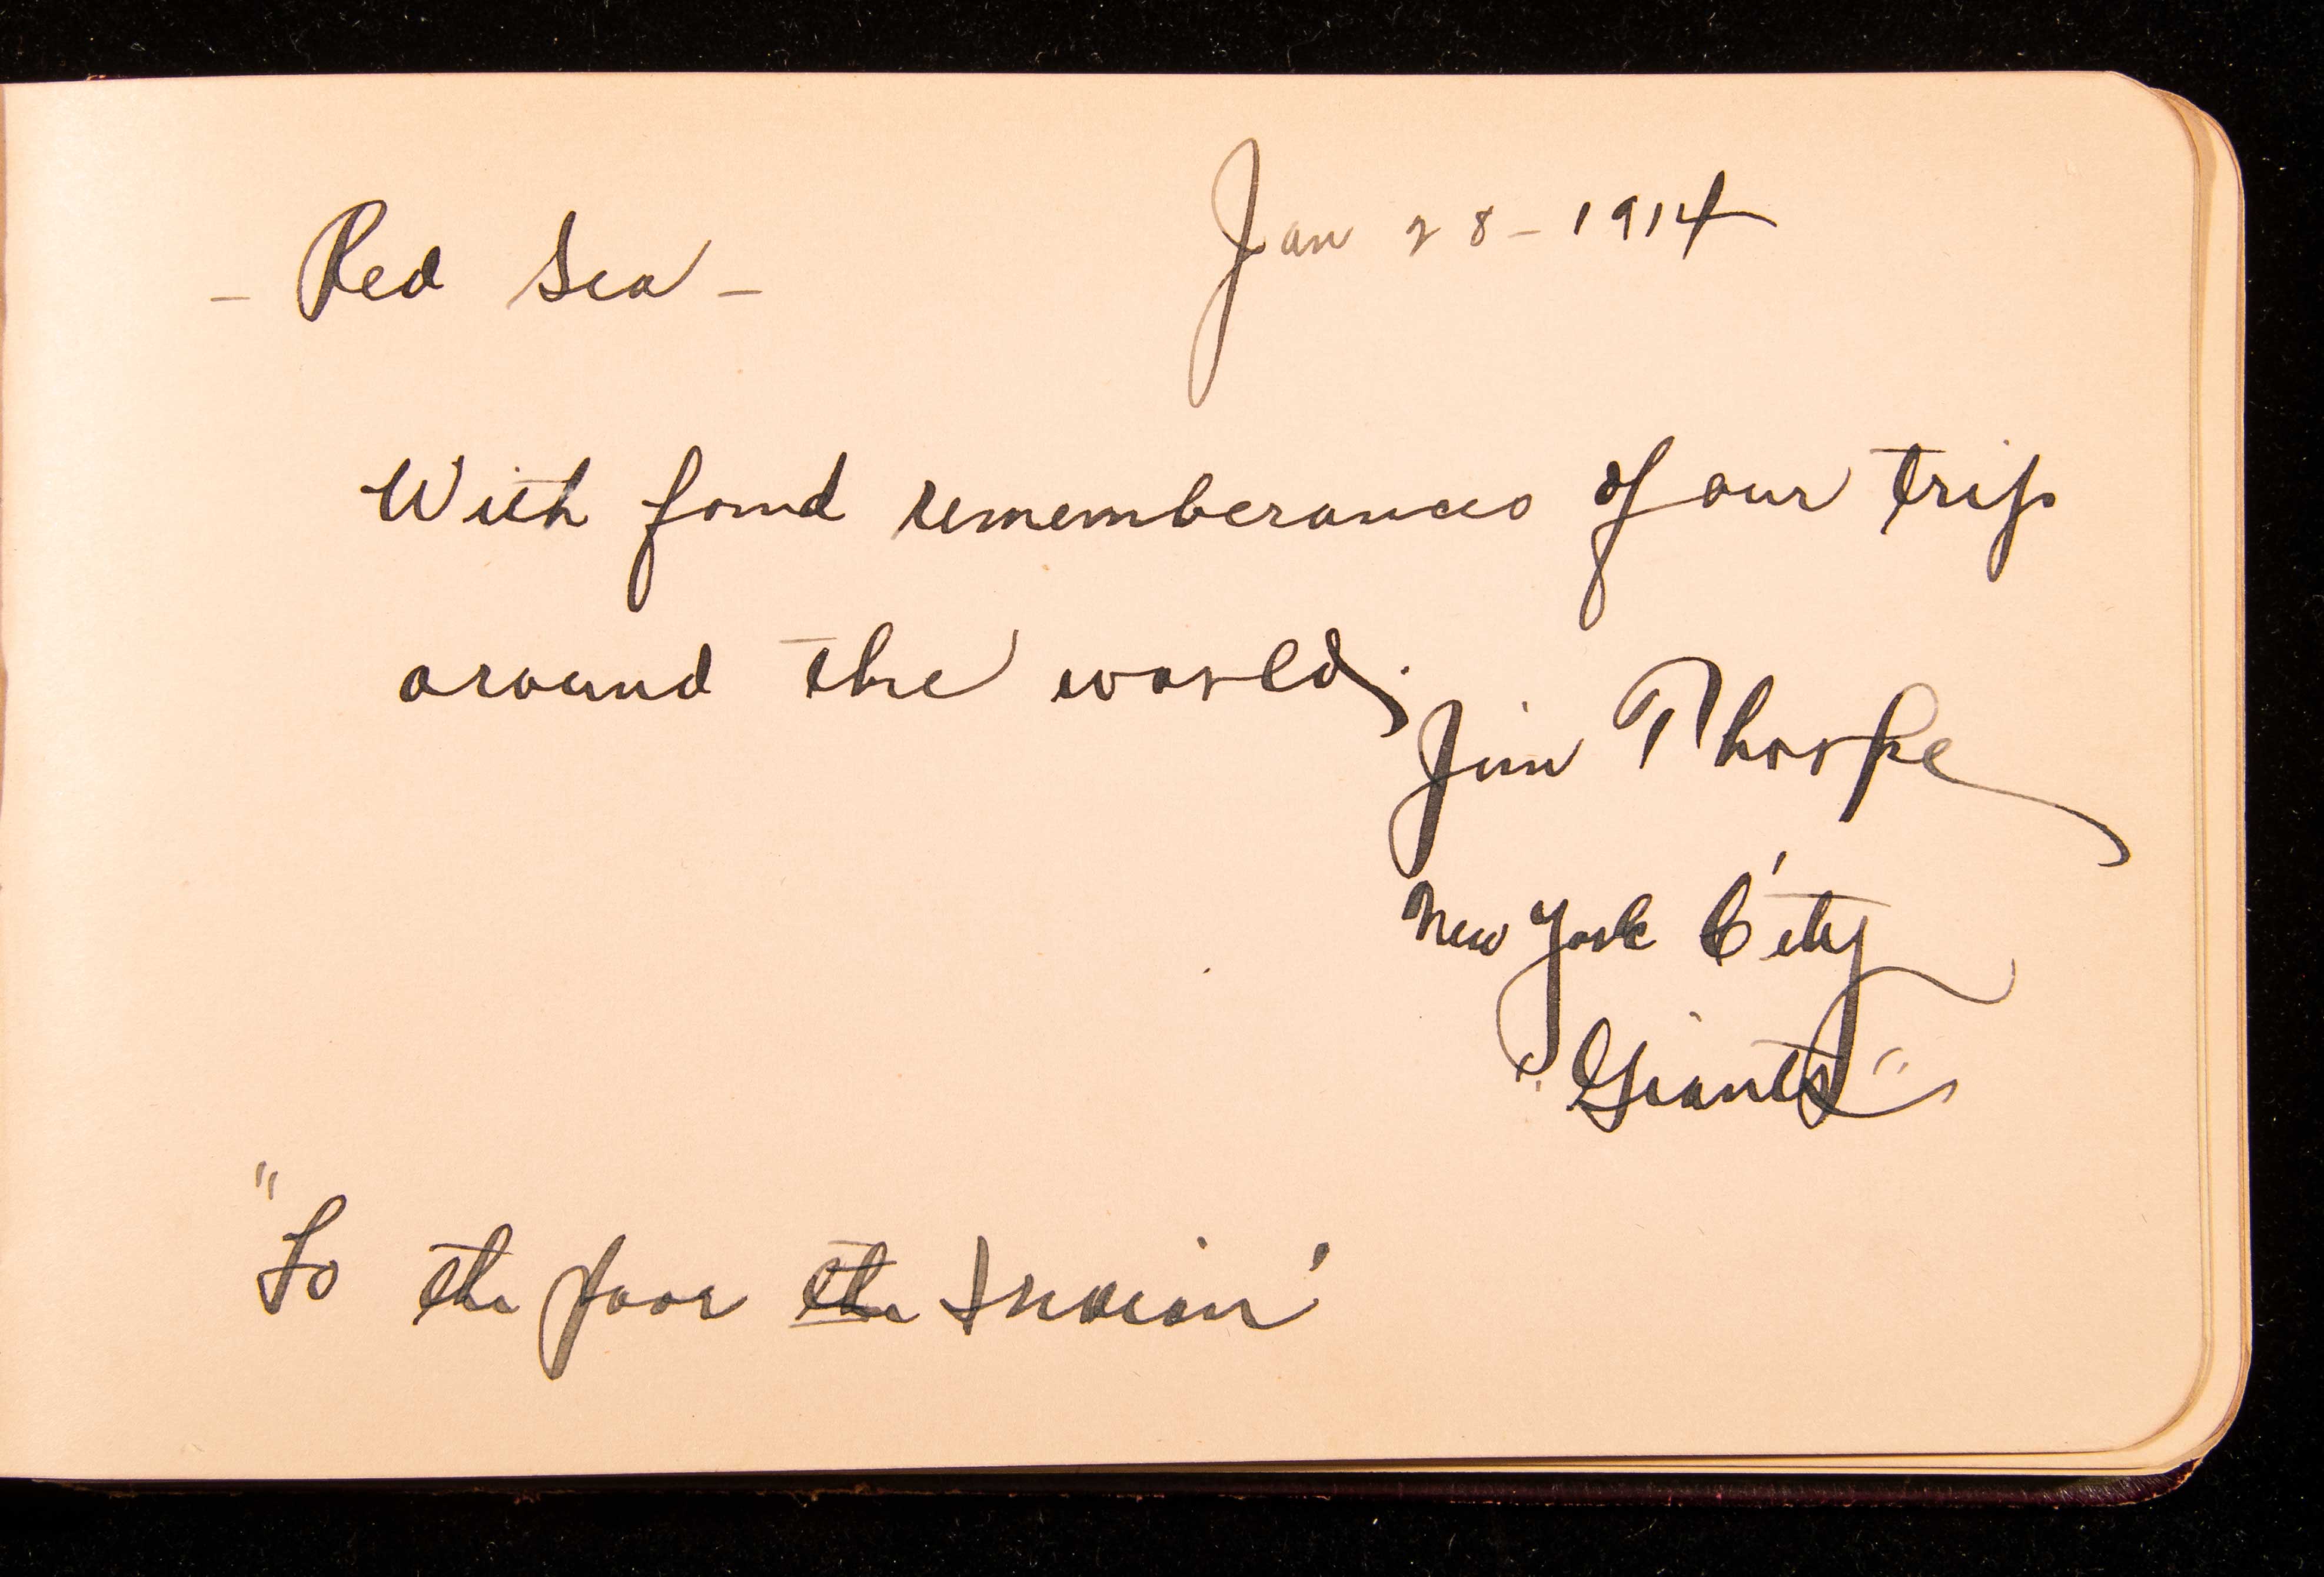 - Red Sea -
Jan 28 - 1914
With fond rememberances of our trip
around the world.
Jim Thorpe
New York City
"Giants"
"Lo the poor the Indian"